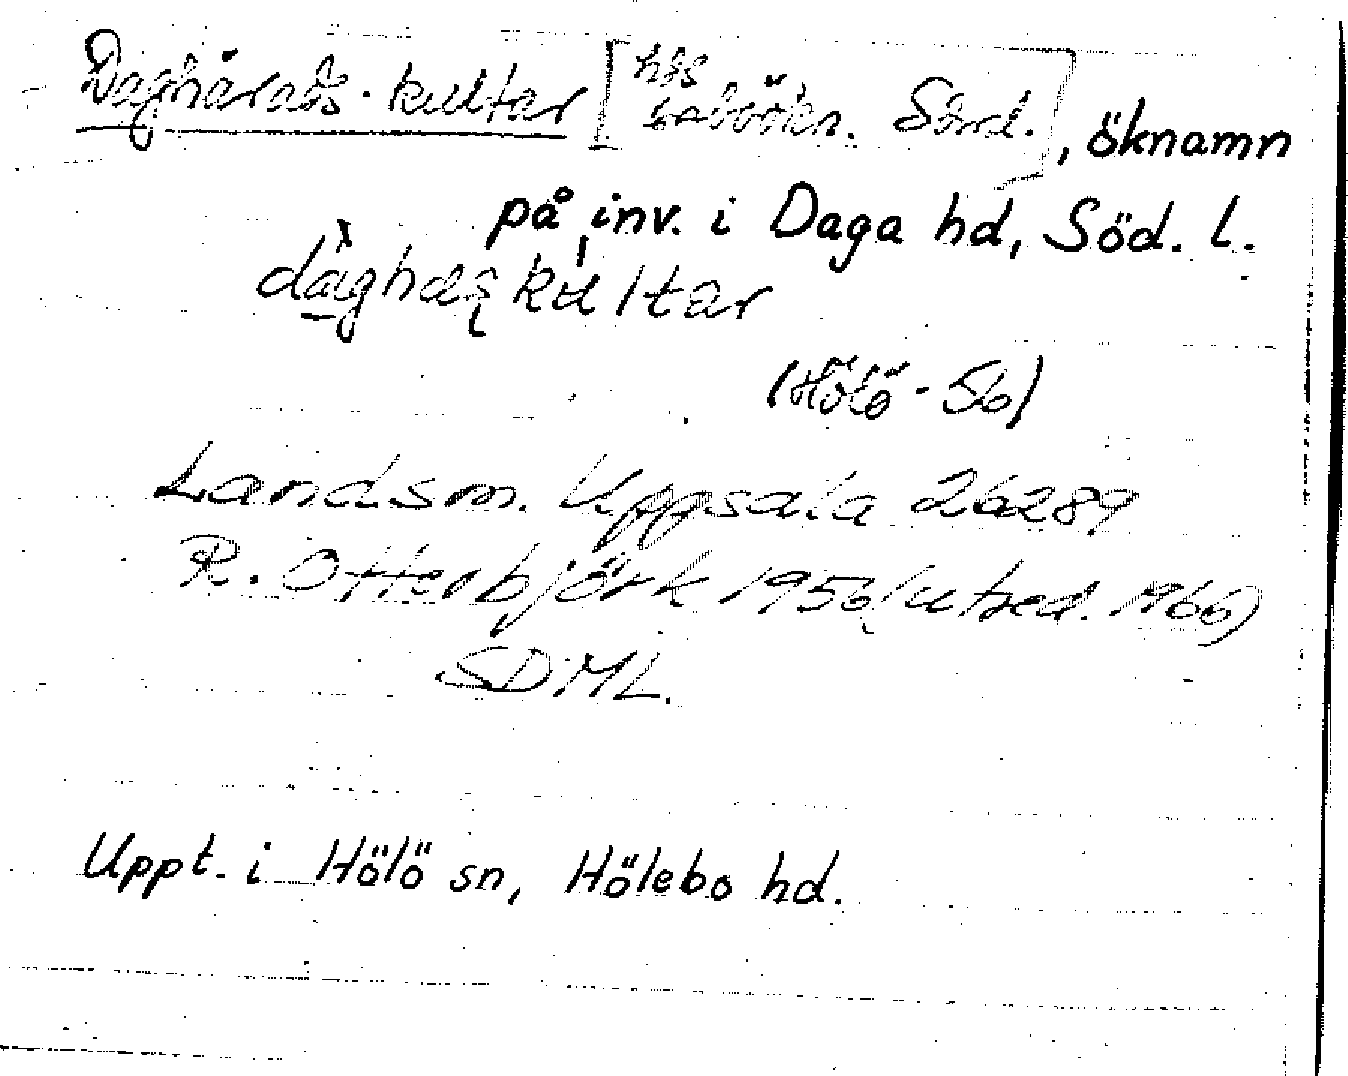 Daghärads-kultar [hds inbökn. Söml.], öknamn
på inv. i Daga hd, Söd. L.
kultar
(Hölö - 56)
Landsm. Uppsala 26289
R. Otterbjörk 1956 (utred. 1966)
SDML.
Uppt. i Hölö sn, Hölebo hd.